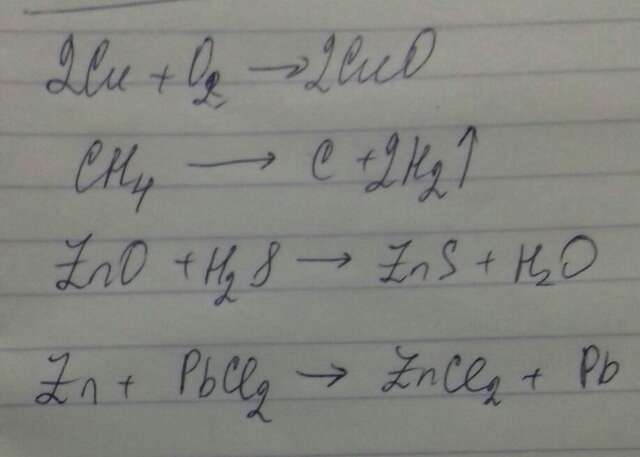 2Cu + O₂ → 2CuO
CH₄ → C + 2H₂↑
ZnO + H₂S → ZnS + H₂O
Zn + PbCl₂ → ZnCl₂ + Pb